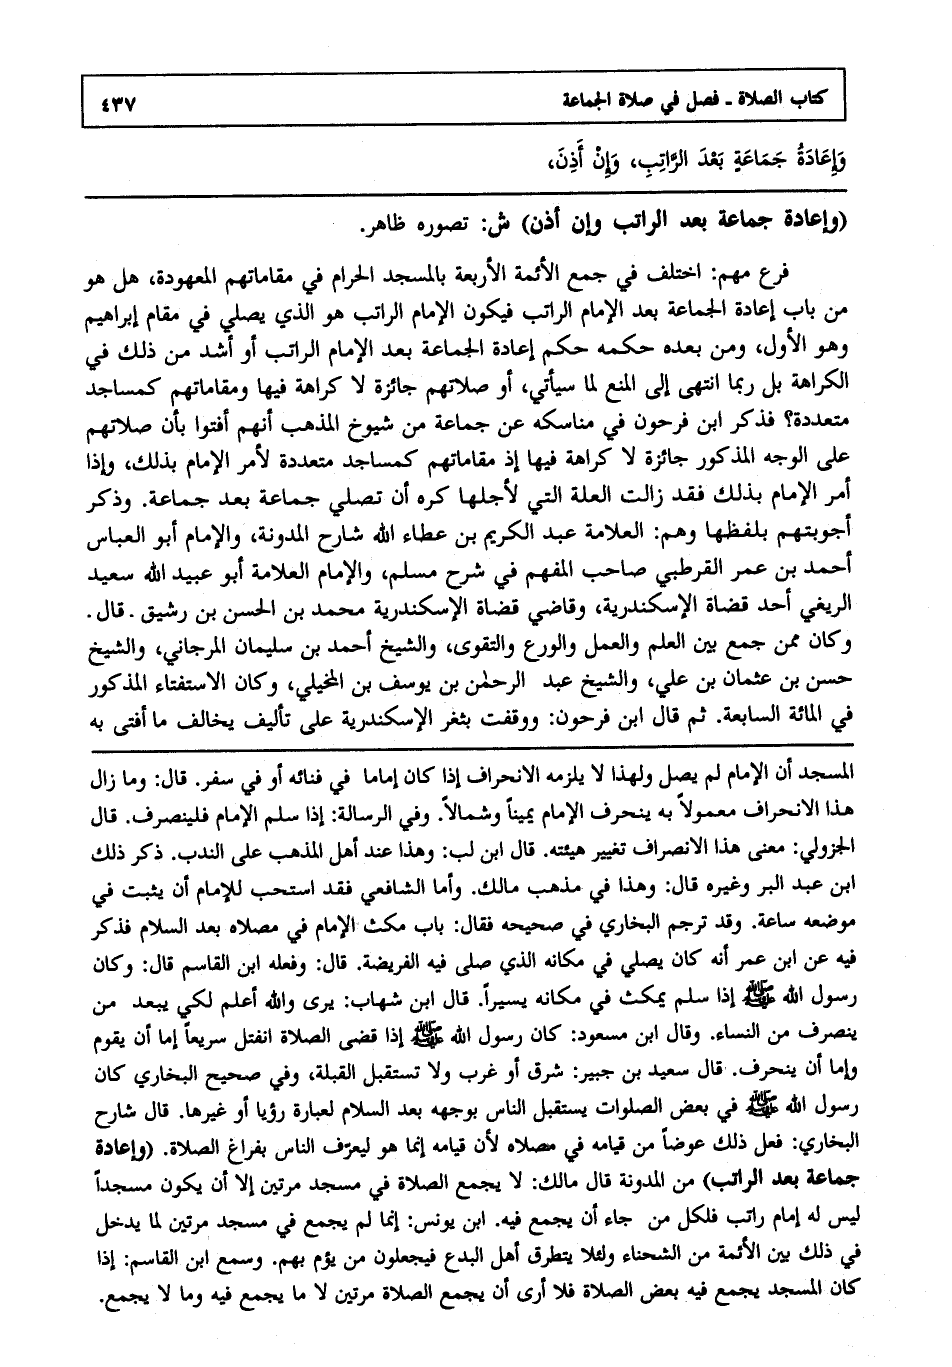 كتاب الصلاة - فصل في صلاة الجماعة ٤٣٧
وَإِعَادَةُ جَمَاعَةٍ بَعْدَ الرَّاتِبِ، وَإِنْ أَذِنَ،
(وإعادة جماعة بعد الراتب وإن أذن) ش: تصوره ظاهر.
فرع مهم: اختلف في جمع الأئمة الأربعة بالمسجد الحرام في مقاماتهم المعهودة، هل هو
من باب إعادة الجماعة بعد الإمام الراتب فيكون الإمام الراتب هو الذي يصلي في مقام إبراهيم
وهو الأول، ومن بعده حكمه حكم إعادة الجماعة بعد الإمام الراتب أو أشد من ذلك في
الكراهة بل ربما انتهى إلى المنع لما سيأتي، أو صلاتهم جائزة لا كراهة فيها ومقاماتهم كمساجد
متعددة؟ فذكر ابن فرحون في مناسكه عن جماعة من شيوخ المذهب أنهم أفتوا بأن صلاتهم
على الوجه المذكور جائزة لا كراهة فيها إذ مقاماتهم كمساجد متعددة لأمر الإمام بذلك، وإذا
أمر الإمام بذلك فقد زالت العلة التي لأجلها كره أن تصلي جماعة بعد جماعة. وذكر
أجوبتهم بلفظها وهم: العلامة عبد الكريم بن عطاء الله شارح المدونة، والإمام أبو العباس
أحمد بن عمر القرطبي صاحب المفهم في شرح مسلم، والإمام العلامة أبو عبيد الله سعيد
الريغي أحد قضاة الإسكندرية، وقاضي قضاة الإسكندرية محمد بن الحسن بن رشيق - قال -
وكان ممن جمع بين العلم والعمل والورع والتقوى، والشيخ أحمد بن سليمان المرجاني، والشيخ
حسن بن عثمان بن علي، والشيخ عبد الرحمٰن بن يوسف بن المخيلي، وكان الاستفتاء المذكور
في المائة السابعة. ثم قال ابن فرحون: ووقفت بثغر الإسكندرية على تأليف يخالف ما أفتى به
المسجد أن الإمام لم يصل ولهذا لا يلزمه الانحراف إذا كان إماما في فنائه أو في سفر. قال: وما زال
هذا الانحراف معمولاً به ينحرف الإمام يميناً وشمالاً. وفي الرسالة: إذا سلم الإمام فلينصرف. قال
الجزولي: معنى هذا الانصراف تغيير هيئته. قال ابن لب: وهذا عند أهل المذهب على الندب. ذكر ذلك
ابن عبد البر وغيره قال: وهذا في مذهب مالك. وأما الشافعي فقد استحب للإمام أن يثبت في
موضعه ساعة. وقد ترجم البخاري في صحيحه فقال: باب مكث الإمام في مصلاه بعد السلام فذكر
فيه عن ابن عمر أنه كان يصلي في مكانه الذي صلى فيه الفريضة. قال: وفعله ابن القاسم قال: وكان
رسول الله ﷺ إذا سلم يمكث في مكانه يسيراً. قال ابن شهاب: يرى والله أعلم لكي يبعد من
ينصرف من النساء. وقال ابن مسعود: كان رسول الله ﷺ إذا قضى الصلاة انفتل سريعاً إما أن يقوم
وإما أن ينحرف. قال سعيد بن جبير: شرق أو غرب ولا تستقبل القبلة، وفي صحيح البخاري كان
رسول الله ﷺ في بعض الصلوات يستقبل الناس بوجهه بعد السلام لعبارة رؤيا أو غيرها. قال شارح
البخاري: فعل ذلك عوضاً من قيامه في مصلاه لأن قيامه إنما هو ليعرّف الناس بفراغ الصلاة. (وإعادة
جماعة بعد الراتب) من المدونة قال مالك: لا يجمع الصلاة في مسجد مرتين إلا أن يكون مسجداً
ليس له إمام راتب فلكل من جاء أن يجمع فيه. ابن يونس: إنما لم يجمع في مسجد مرتين لما يدخل
في ذلك بين الأئمة من الشحناء ولئلا يتطرق أهل البدع فيجعلون من يؤم بهم. وسمع ابن القاسم: إذا
كان المسجد يجمع فيه بعض الصلاة فلا أرى أن يجمع الصلاة مرتين لا ما يجمع فيه وما لا يجمع.